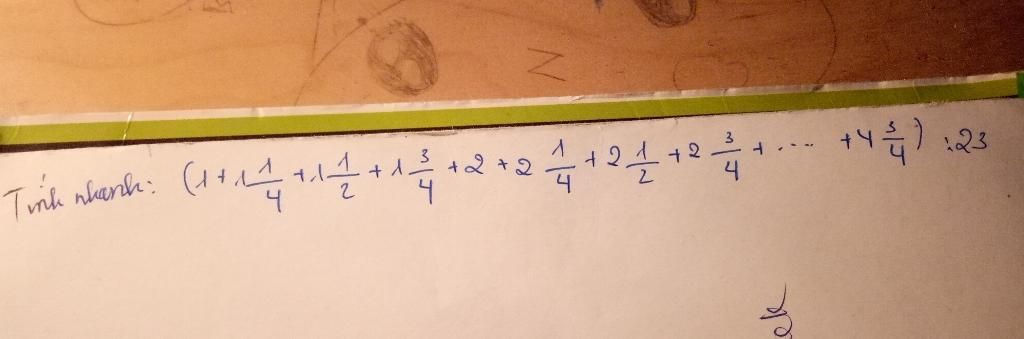 Tính nhanh: (1 + 1 1/4 + 1 1/2 + 1 3/4 + 2 + 2 1/4 + 2 1/2 + 2 3/4 + ... + 4 3/4) : 23